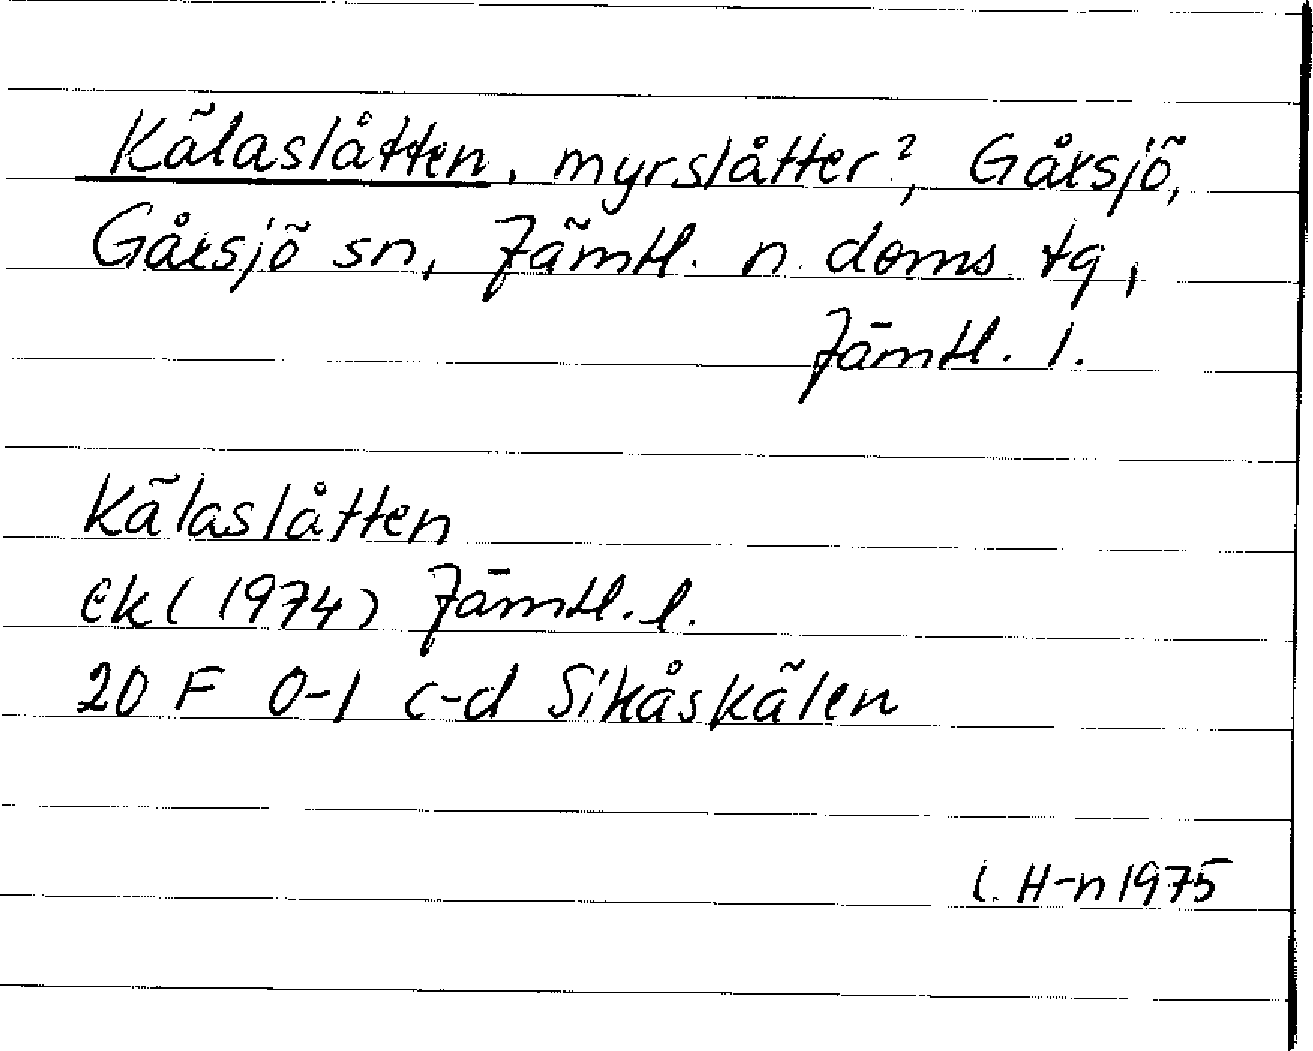 Kälaslåtten, myrslåtter?, Gåxsjö,
Gåxsjö sn, Jämtl. n. doms tg,
Jämtl. l.
Kälaslåtten
ek (1974) Jämtl. l.
20 F 0-1 c-d Sikåskälen
C. H-n 1975